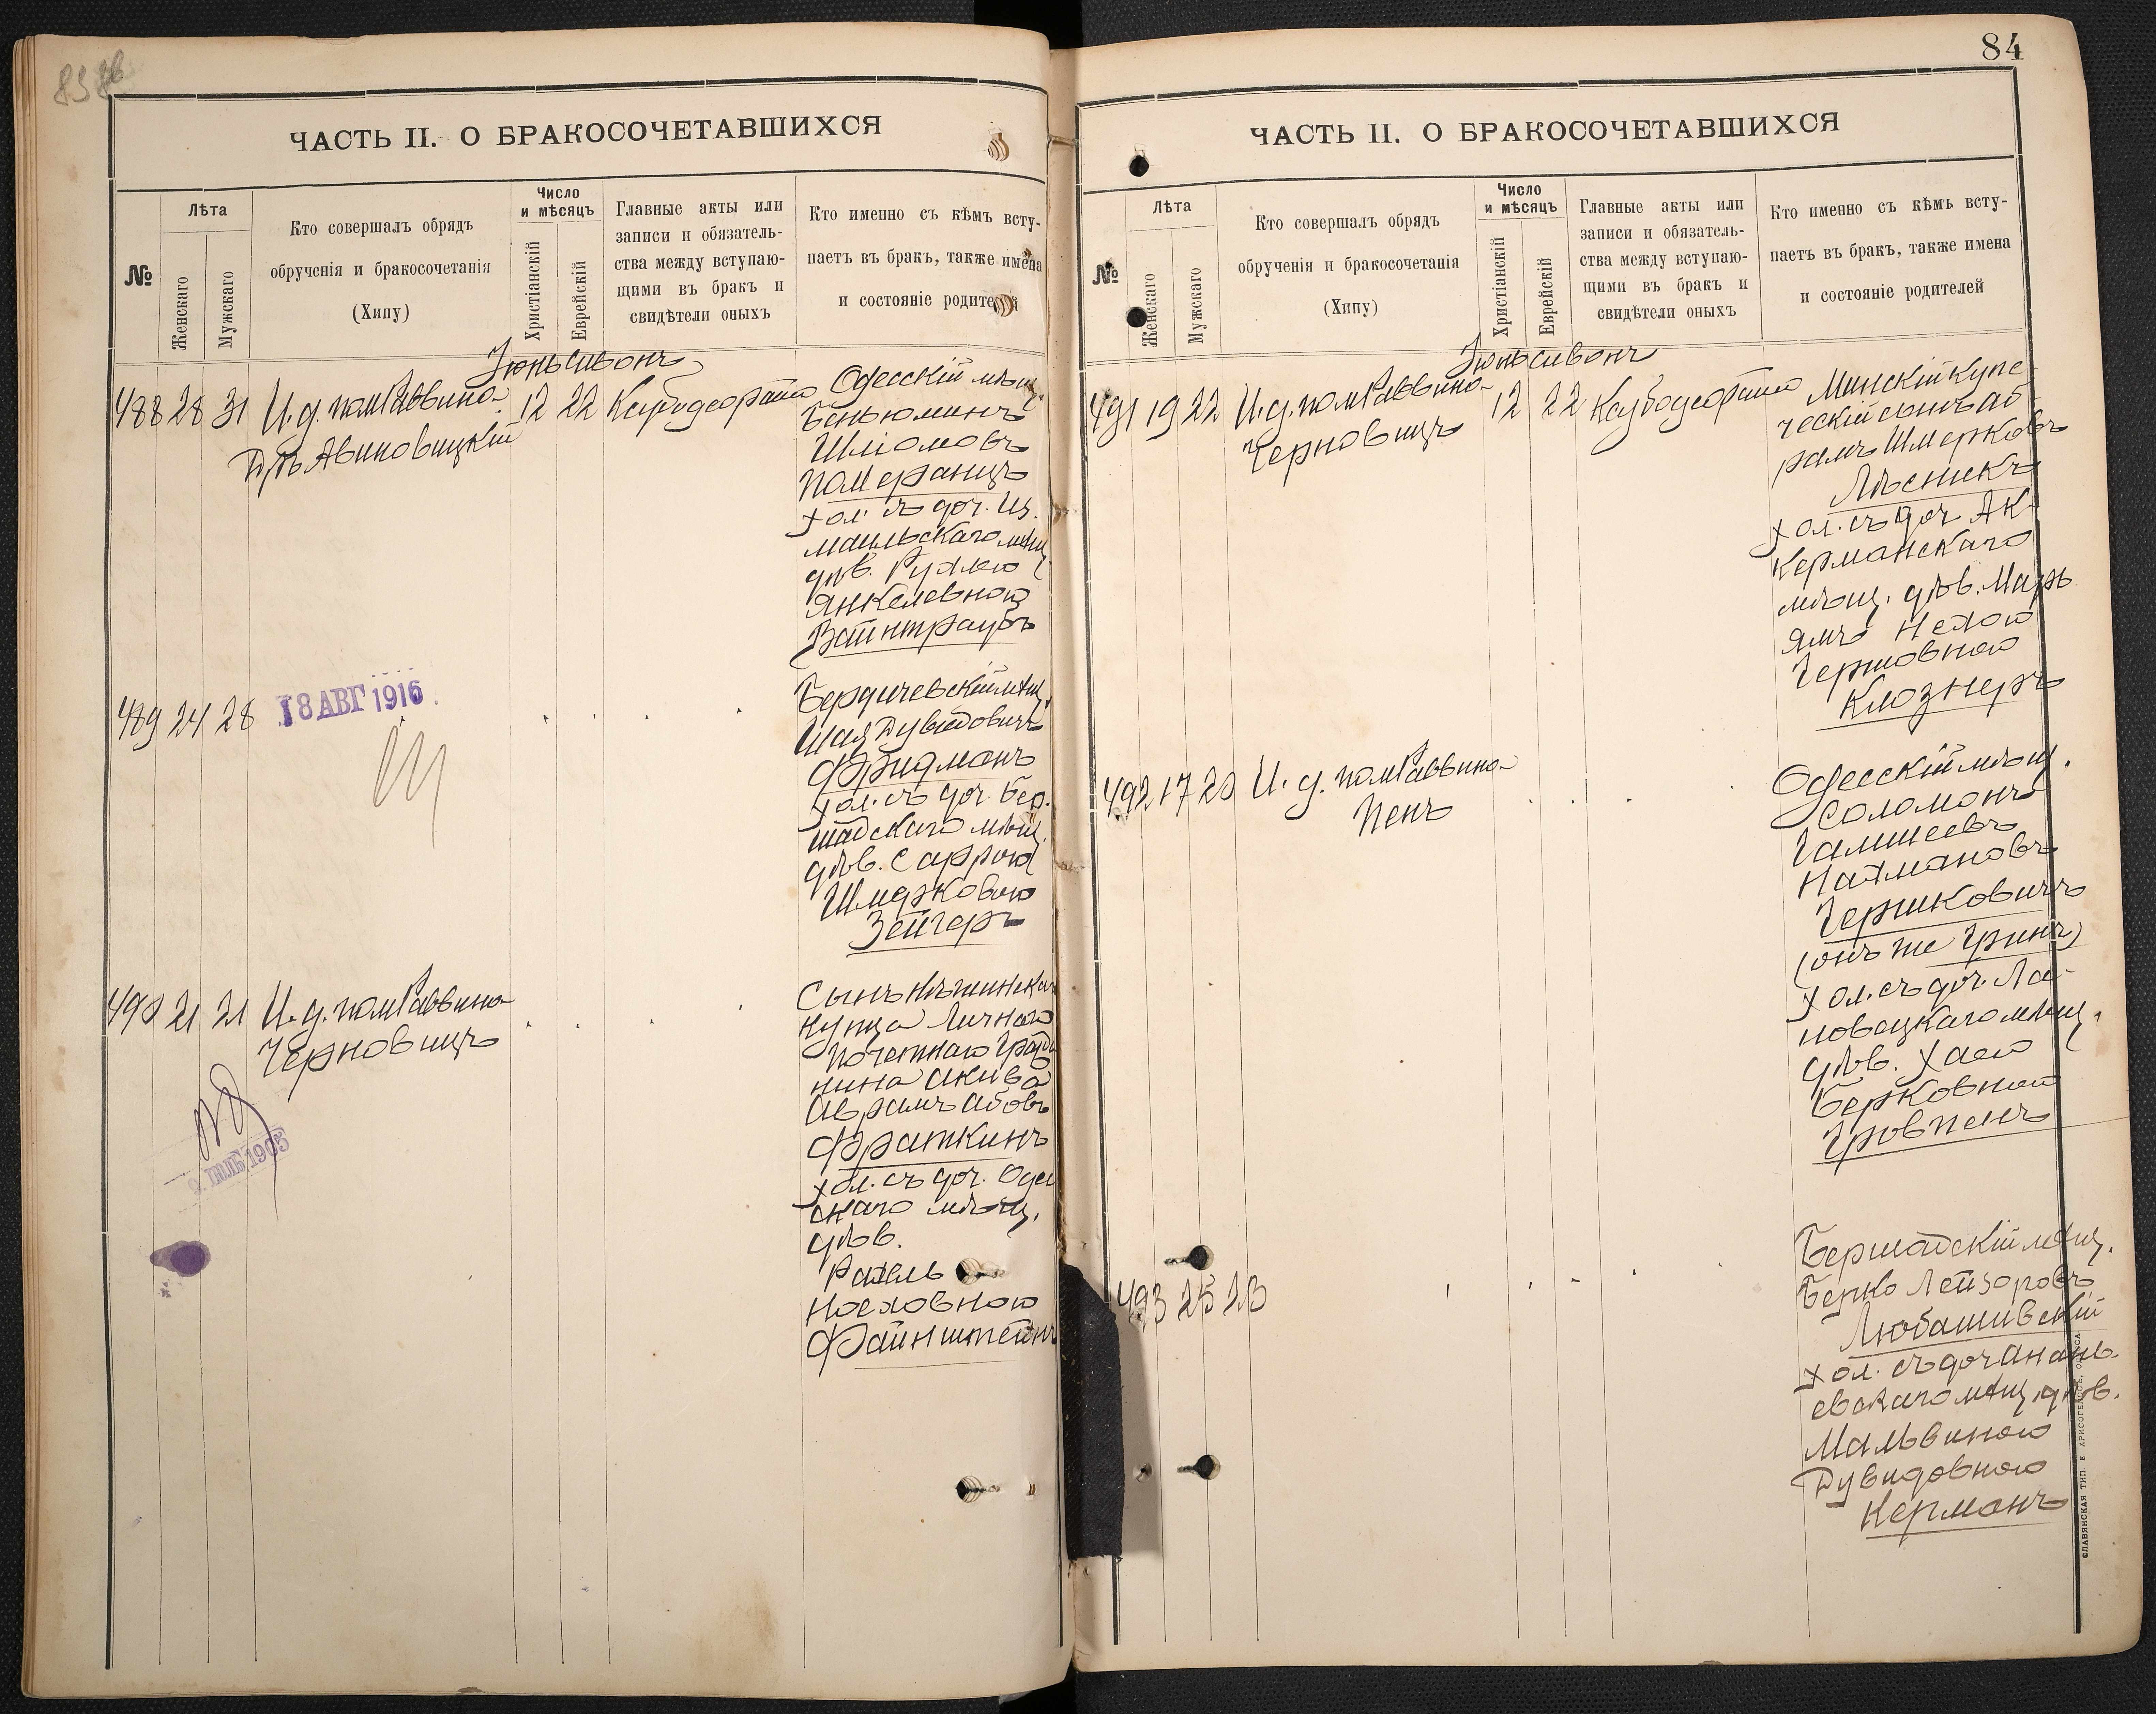 83 об
ЧАСТЬ II. О БРАКОСОЧЕТАВШИХСЯ
№
Лѣта
Женскаго
Мужскаго
Кто совершалъ обрядъ
обрученія и бракосочетанія
(Хипу)
Число
и мѣсяцъ
Христіанскій
Еврейскій
Главные акты или
записи и обязатель-
ства между вступаю-
щими въ бракъ и
свидѣтели оныхъ
Кто именно съ кѣмъ всту-
паетъ въ бракъ, также имена
и состояніе
Іюнь Сивонъ
488 28 31 И. д. пом Раввина
Авиновицкій
12 22
Одесскій мѣщ.
Беньюминъ
Шліомовъ
Померанцъ
хол. съ доч. Из-
маильскаго мѣщ
дѣв. Рухлею
Янкелевною
Вайнтраубъ
489 24 28
18 АВГ 1916
Бердичевскій мѣщ.
Шая Дувидовичъ
Фридманъ
хол. съ доч. Бер-
шадскаго мѣщ.
дѣв. Саррою
Шмерковою
Зейгеръ
490 21 21 И. д. пом Раввина
Черновицъ
9 1905
Сынъ Нѣжинскаго
купца Личнаго
Почетнаго Гражда
нина Акива
Аврамъ Абовъ
Фраткинъ
хол. съ доч. Одес
скаго мѣщ.
дѣв.
Рахель
Файнштейнъ
84
ЧАСТЬ II. О БРАКОСОЧЕТАВШИХСЯ
№
Лѣта
Женскаго
Мужскаго
Кто совершалъ обрядъ
обрученія и бракосочетанія
(Хипу)
Число
и мѣсяцъ
Христіанскій
Еврейскій
Главные акты или
записи и обязатель-
ства между вступаю-
щими въ бракъ и
свидѣтели оныхъ
Кто именно съ кѣмъ всту-
паетъ въ бракъ, также имена
и состояніе родителей
Іюнь Сивонъ
491 19 22 И. д. пом Раввина
Черновицъ
12 22
Минскій купе-
ческій сынъ Аб-
рамъ Шмерковъ
Лѣсникъ
хол. съ доч. Ак-
керманскаго
мѣщ. дѣв. Маръ
ямъ Нехою
Гершовною
Клознеръ
492 17 20 И. д. пом Раввина
Пенъ
Одесскій мѣщ.
Соломонъ
Гамшеевъ
Нахмановъ
Гершковичъ
(онъ же Гринъ)
хол. съ доч. Ла-
новецкаго мѣщ.
дѣв. Хаею
Берковною
Гровпенъ
493 25 23
Бершадскій мѣщ.
Берко Лейзоровъ
Любашивскій
хол. съ доч Анань-
евскаго мѣщ. дѣв.
Мальвиною
Дувидовною
Керманъ
СЛАВЯНСКАЯ ТИП. Е ХРИСОГЕЛОСЪ, ОДЕССА.